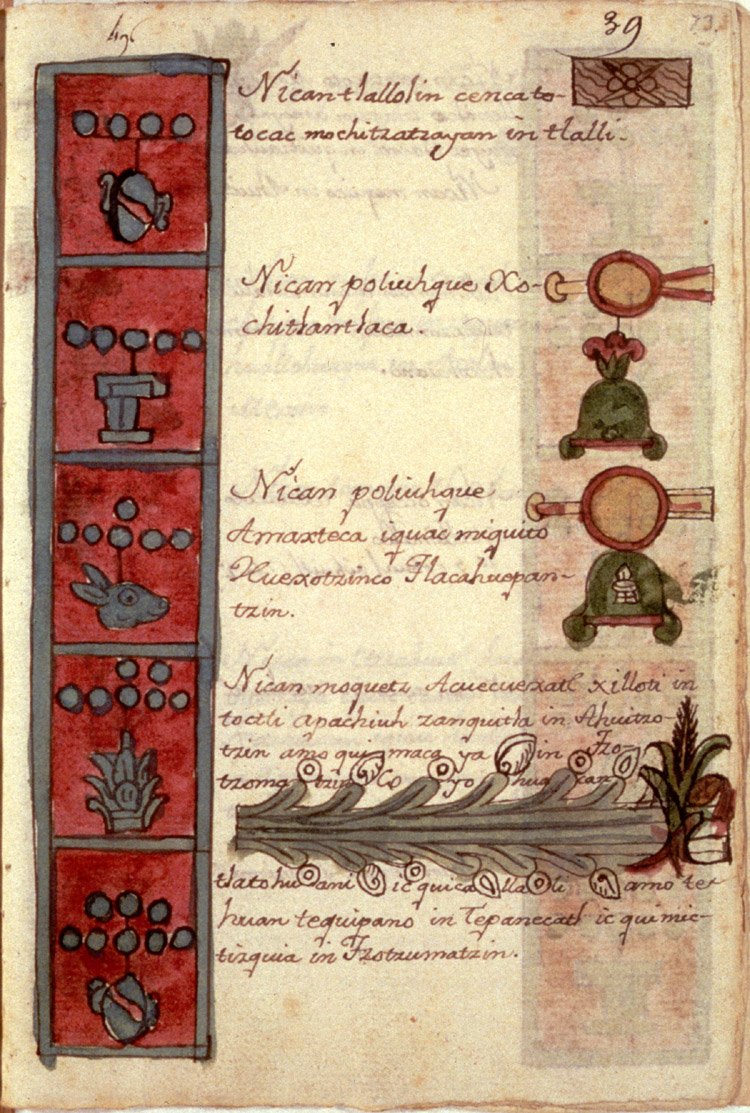 39
73.
Nican tlallolin cenca to-
tocac mochitzatzayan in tlalli.
Nican poliuhque Xo-
chitlantlaca.
Nican poliuhque
Amaxteca iquac miquito
Huexotzinco Tlacahuepan-
tzin.
Nican moquetz Acuecuexatl xilloti in
toctli apachiuh zanquitla in Ahuitzo-
tzin amo qui maca ya in Tzo-
tzoma tzin Co yo hua can
tlatohuani ic quica llaoli amo te
huan tequipano in Tepanecatl ic quimic-
tizquia in Tzotzumatzin.